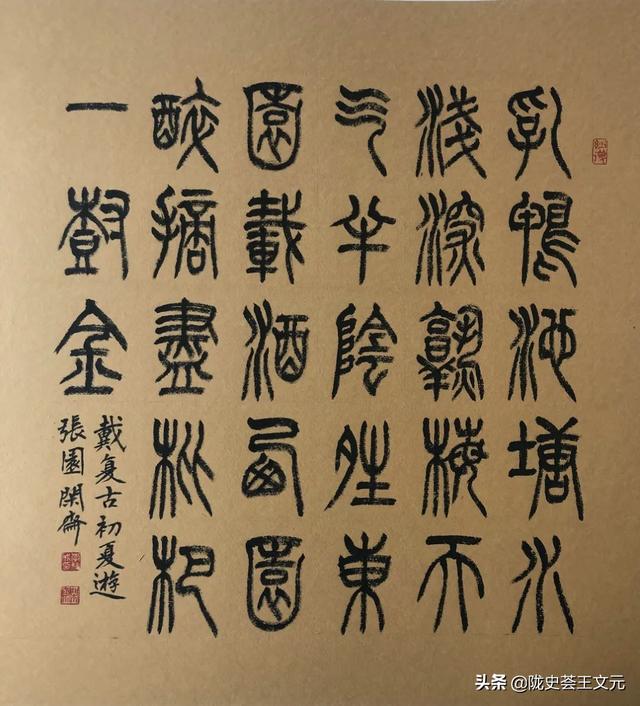 乳鴨池塘水
淺深熟梅天
气半陰晴東
園載酒西園
醉摘盡枇杷
一樹金
戴复古初夏遊
張園 閑齋
头条 @陇史荟王文元